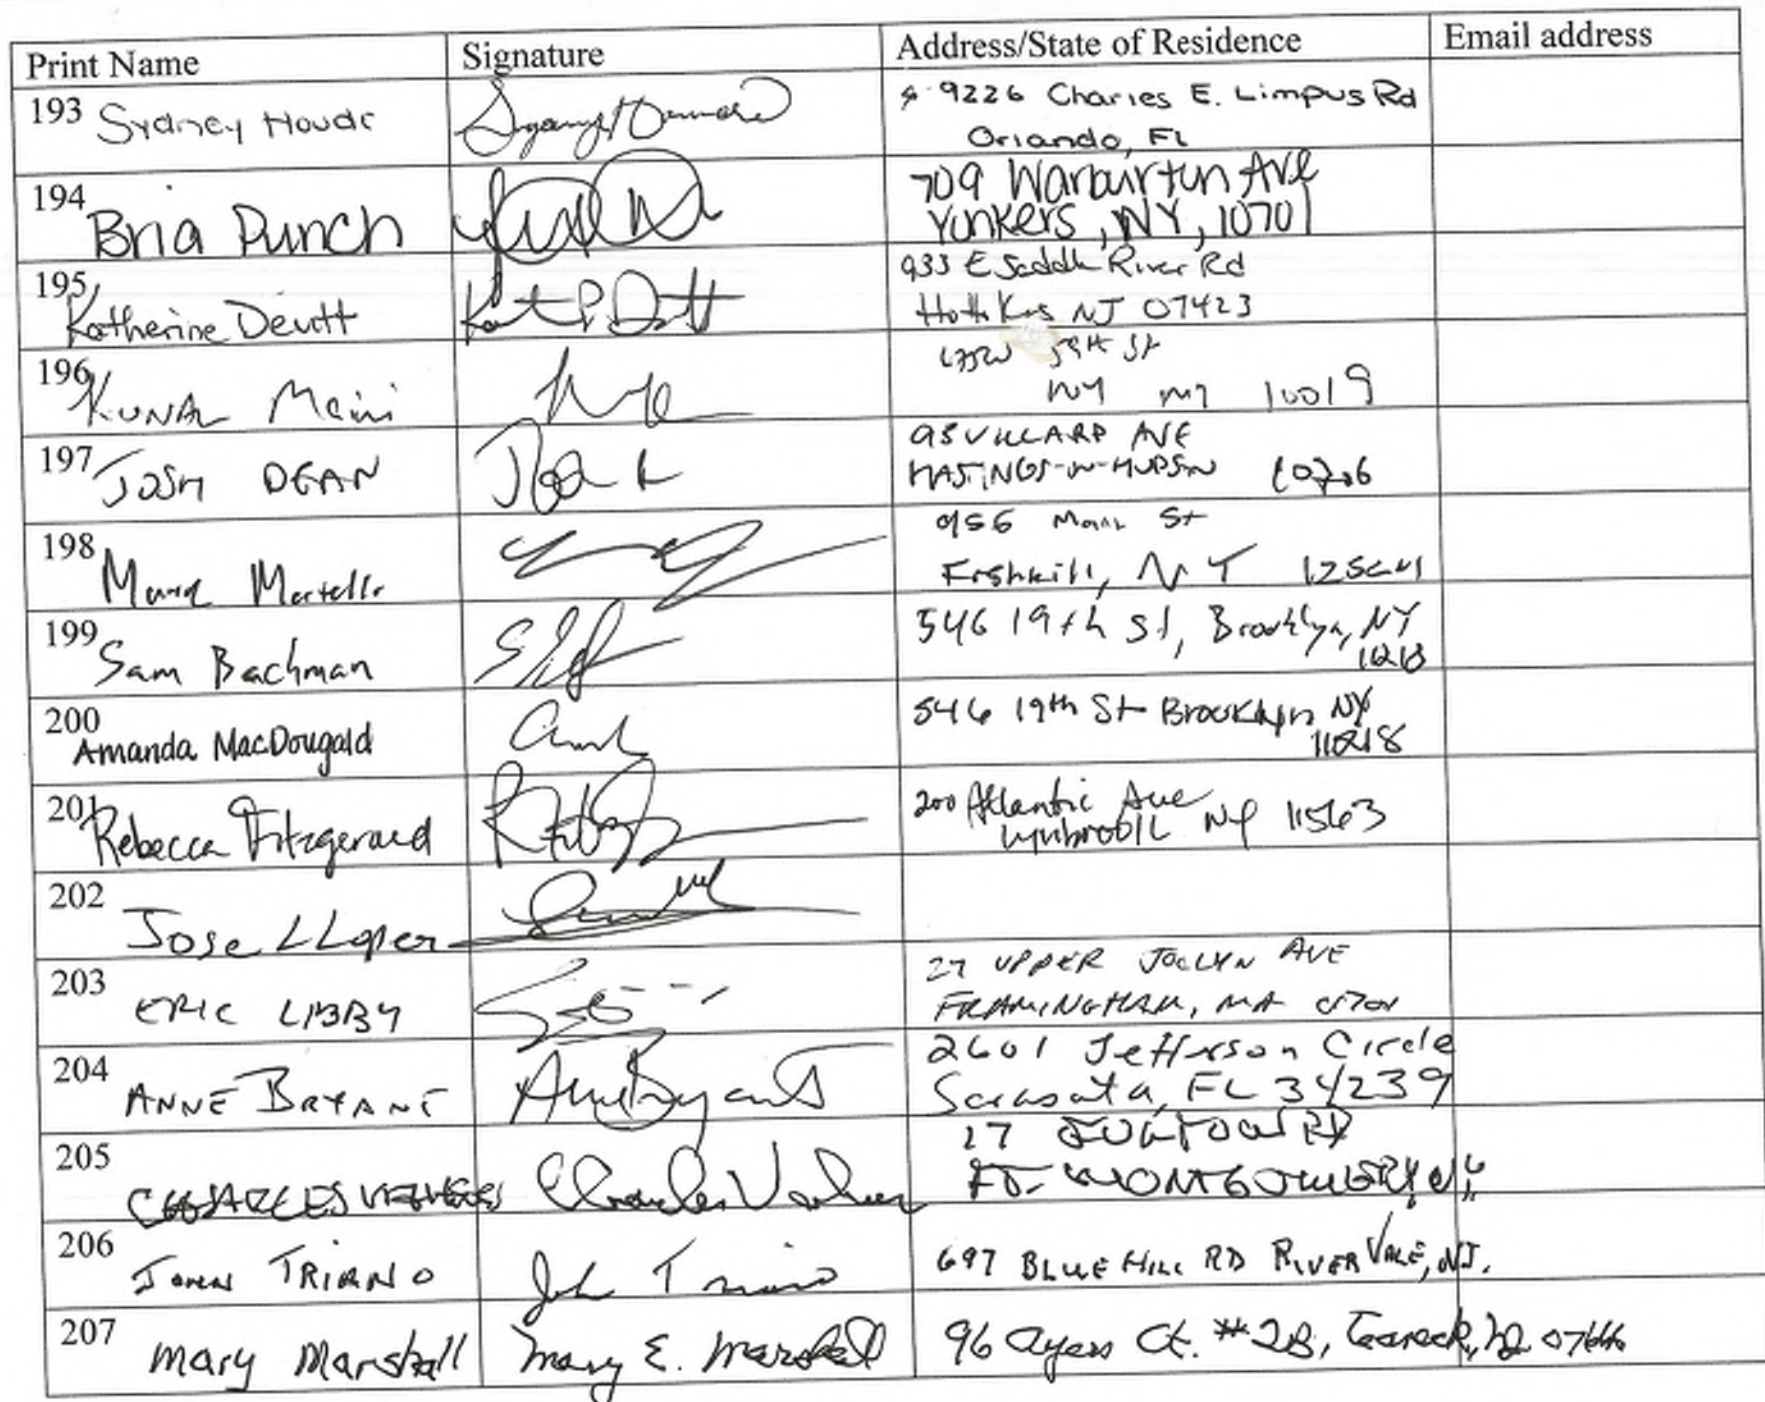 Print Name Signature Address/State of Residence Email address
193 Sydney Houde 9226 Charles E. Limpus Rd
Orlando, FL
194 Bria Punch 709 Warburton Ave
Yonkers, NY, 10701
195 Katherine Devitt 933 E Saddle River Rd
Ho-Ho-Kus NJ 07423
196 Kunal Maini 59th St
NY NY 10019
197 JOSH DEAN 95 VILLARD AVE
HASTINGS-ON-HUDSON 10706
198 Martello 956 Main St
Fishkill, NY 12524
199 Sam Bachman 546 19th St, Brooklyn, NY
11218
200 Amanda MacDougald 546 19th St Brooklyn NY
11218
201 Rebecca Fitzgerald 200 Atlantic Ave
Lynbrook NY 11563
202 Jose L Lopez
203 ERIC LIBBY 27 UPPER JOCLYN AVE
FRAMINGHAM, MA 01701
204 ANNE BRYANT Anne Bryant 2601 Jefferson Circle
Sarasota, FL 34239
205 CHARLES Charles 17 RD
FT. MONTGOMERY N.Y.
206 JOHN TRIANO John Triano 697 BLUE HILL RD RIVER VALE, NJ.
207 Mary Marshall Mary E. Marshall 96 Ayers Ct. #2B, Teaneck, NJ 07666